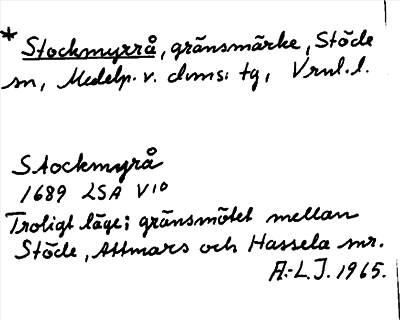 * Stockmyrrå, gränsmärke, Stöde
sn, Medelp. v. doms. tg, Vrnl. l.
Stockmyrå
1689 LSA V10
Troligt läge; gränsmötet mellan
Stöde, Attmars och Hassela snr.
A.-L. J. 1965.